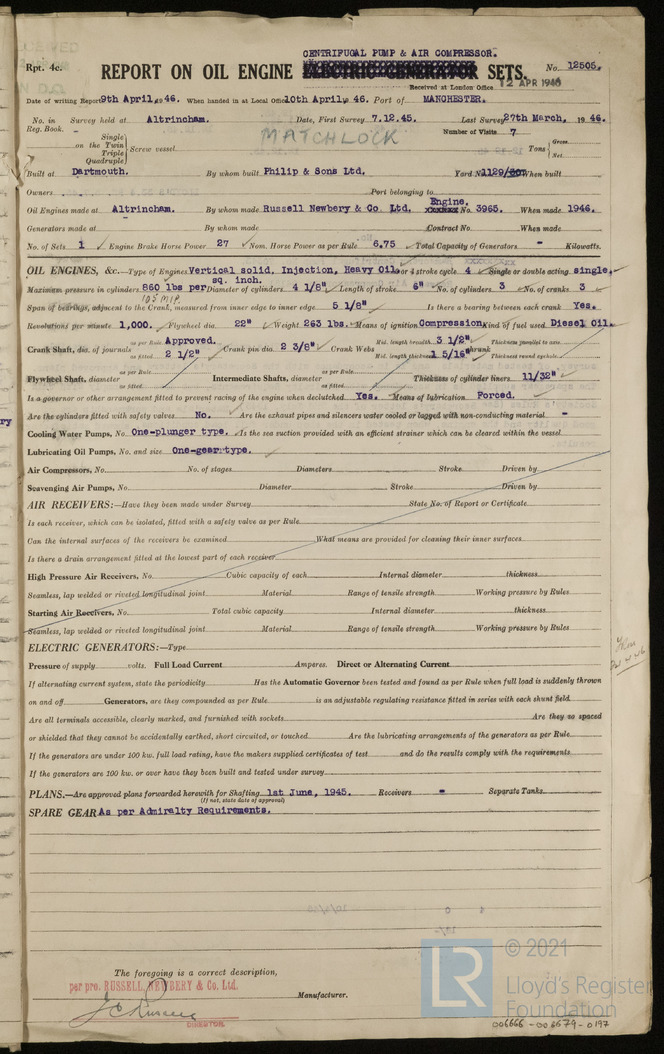 CENTRIFUGAL PUMP & AIR COMPRESSOR.
Rpt. 4c. REPORT ON OIL ENGINE ELECTRIC GENERATOR SETS. No. 12505.
Received at London Office 12 APR 1946
Date of writing Report 9th April, 1946. When handed in at Local Office 10th April, 46. Port of MANCHESTER.
No. in Reg. Book. Survey held at Altrincham. Date, First Survey 7.12.45. Last Survey 27th March, 1946.
Number of Visits 7
MATCHLOCK
on the Single Twin Triple Quadruple Screw vessel Tons Gross Net
Built at Dartmouth. By whom built Philip & Sons Ltd. Yard No. 1129/ When built
Owners Port belonging to
Oil Engines made at Altrincham. By whom made Russell Newbery & Co. Ltd. Engine. No. 3965. When made 1946.
Generators made at By whom made Contract No. When made
No. of Sets 1 Engine Brake Horse Power 27 Nom. Horse Power as per Rule 6.75 Total Capacity of Generators - Kilowatts.
OIL ENGINES, &c.—Type of Engines Vertical solid, Injection, Heavy Oil. 2 or 4 stroke cycle 4 Single or double acting single.
Maximum pressure in cylinders 860 lbs per sq. inch. Diameter of cylinders 4 1/8" Length of stroke 6" No. of cylinders 3 No. of cranks 3
105 MIP.
Span of bearings, adjacent to the Crank, measured from inner edge to inner edge 5 1/8" Is there a bearing between each crank Yes.
Revolutions per minute 1,000. Flywheel dia. 22" Weight 263 lbs. Means of ignition Compression Kind of fuel used Diesel Oil.
Crank Shaft, dia. of journals as per Rule Approved. as fitted 2 1/2" Crank pin dia. 2 3/8" Crank Webs Mid. length breadth 3 1/2" Mid. length thickness 1 5/16" Thickness parallel to axis shrunk Thickness round eyehole
Flywheel Shaft, diameter as per Rule as fitted Intermediate Shafts, diameter as per Rule as fitted Thickness of cylinder liners 11/32"
Is a governor or other arrangement fitted to prevent racing of the engine when declutched Yes. Means of lubrication Forced.
Are the cylinders fitted with safety valves No. Are the exhaust pipes and silencers water cooled or lagged with non-conducting material -
Cooling Water Pumps, No. One-plunger type. Is the sea suction provided with an efficient strainer which can be cleared within the vessel
Lubricating Oil Pumps, No. and size One-gear type.
Air Compressors, No. No. of stages Diameters Stroke Driven by
Scavenging Air Pumps, No. Diameter Stroke Driven by
AIR RECEIVERS:—Have they been made under Survey State No. of Report or Certificate
Is each receiver, which can be isolated, fitted with a safety valve as per Rule
Can the internal surfaces of the receivers be examined What means are provided for cleaning their inner surfaces
Is there a drain arrangement fitted at the lowest part of each receiver
High Pressure Air Receivers, No. Cubic capacity of each Internal diameter thickness
Seamless, lap welded or riveted longitudinal joint Material Range of tensile strength Working pressure by Rules
Starting Air Receivers, No. Total cubic capacity Internal diameter thickness
Seamless, lap welded or riveted longitudinal joint Material Range of tensile strength Working pressure by Rules
ELECTRIC GENERATORS:—Type
Pressure of supply volts. Full Load Current Amperes. Direct or Alternating Current
If alternating current system, state the periodicity Has the Automatic Governor been tested and found as per Rule when full load is suddenly thrown
on and off Generators, are they compounded as per Rule is an adjustable regulating resistance fitted in series with each shunt field
Are all terminals accessible, clearly marked, and furnished with sockets Are they so spaced
or shielded that they cannot be accidentally earthed, short circuited, or touched Are the lubricating arrangements of the generators as per Rule
If the generators are under 100 kw. full load rating, have the makers supplied certificates of test and do the results comply with the requirements
If the generators are 100 kw. or over have they been built and tested under survey
PLANS.—Are approved plans forwarded herewith for Shafting 1st June, 1945. Receivers - Separate Tanks
(If not, state date of approval)
SPARE GEAR As per Admiralty Requirements.
The foregoing is a correct description,
per pro. RUSSELL, NEWBERY & Co. Ltd.
Manufacturer.
DIRECTOR.
LR © 2021
Lloyd's Register
Foundation
006666-006679-0197